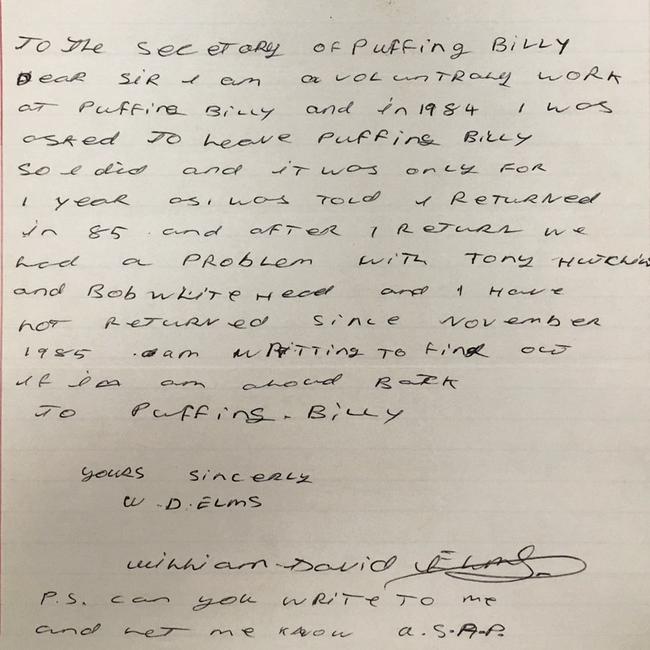 To the secetory of Puffing Billy
Dear Sir I am a voluntraly work
at Puffing Billy and in 1984 I was
asked to leave Puffing Billy
so I did and it was only for
1 year as i was told I returned
in 85 and after I return we
had a problem with Tony Hutchins
and Bob White Head and I have
not returned since November
1985 . am writting to find out
if im am aloud back
to Puffing. Billy
yours sincerly
W.D. Elms
William David Elms
P.S. can you write to me
and let me know a.S.A.P.